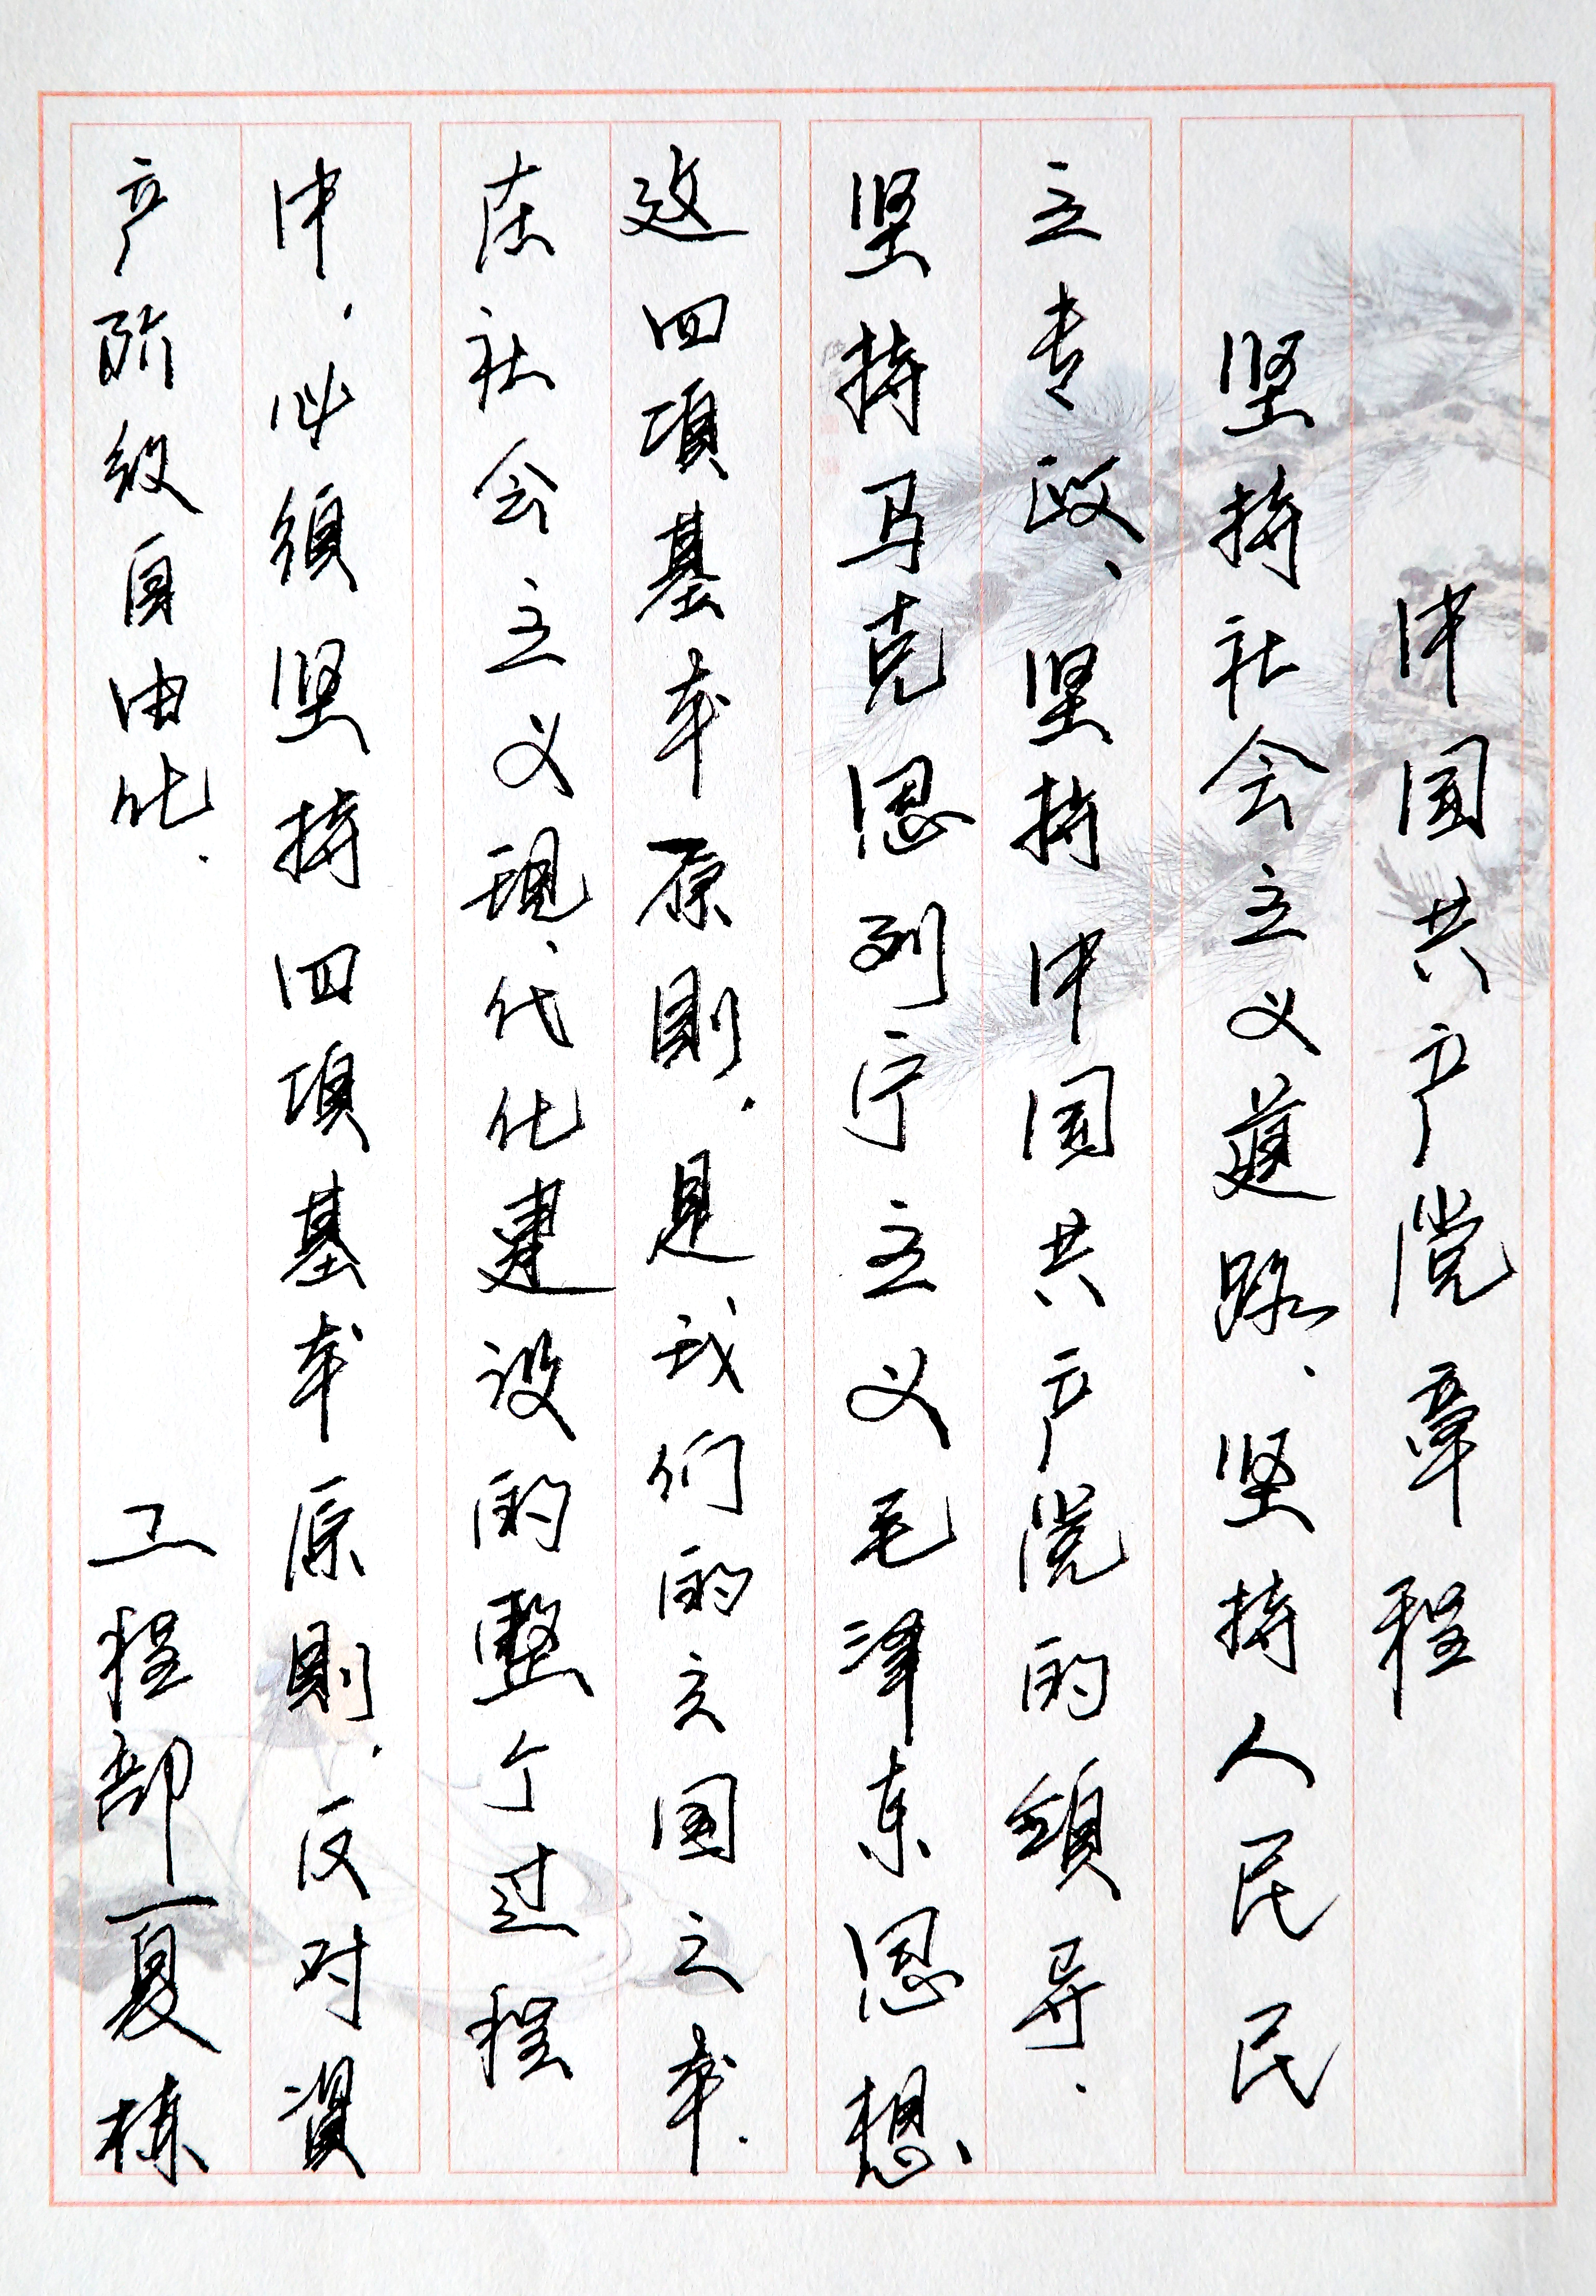 中国共产党章程
坚持社会主义道路、坚持人民民
主专政、坚持中国共产党的領导、
坚持马克思列宁主义毛泽东思想、
这四項基本原則，是我们的立国之本．
在社会主义現代化建设的整个过程
中，必須坚持四項基本原則，反对資
产阶级自由化． 工程部夏栋